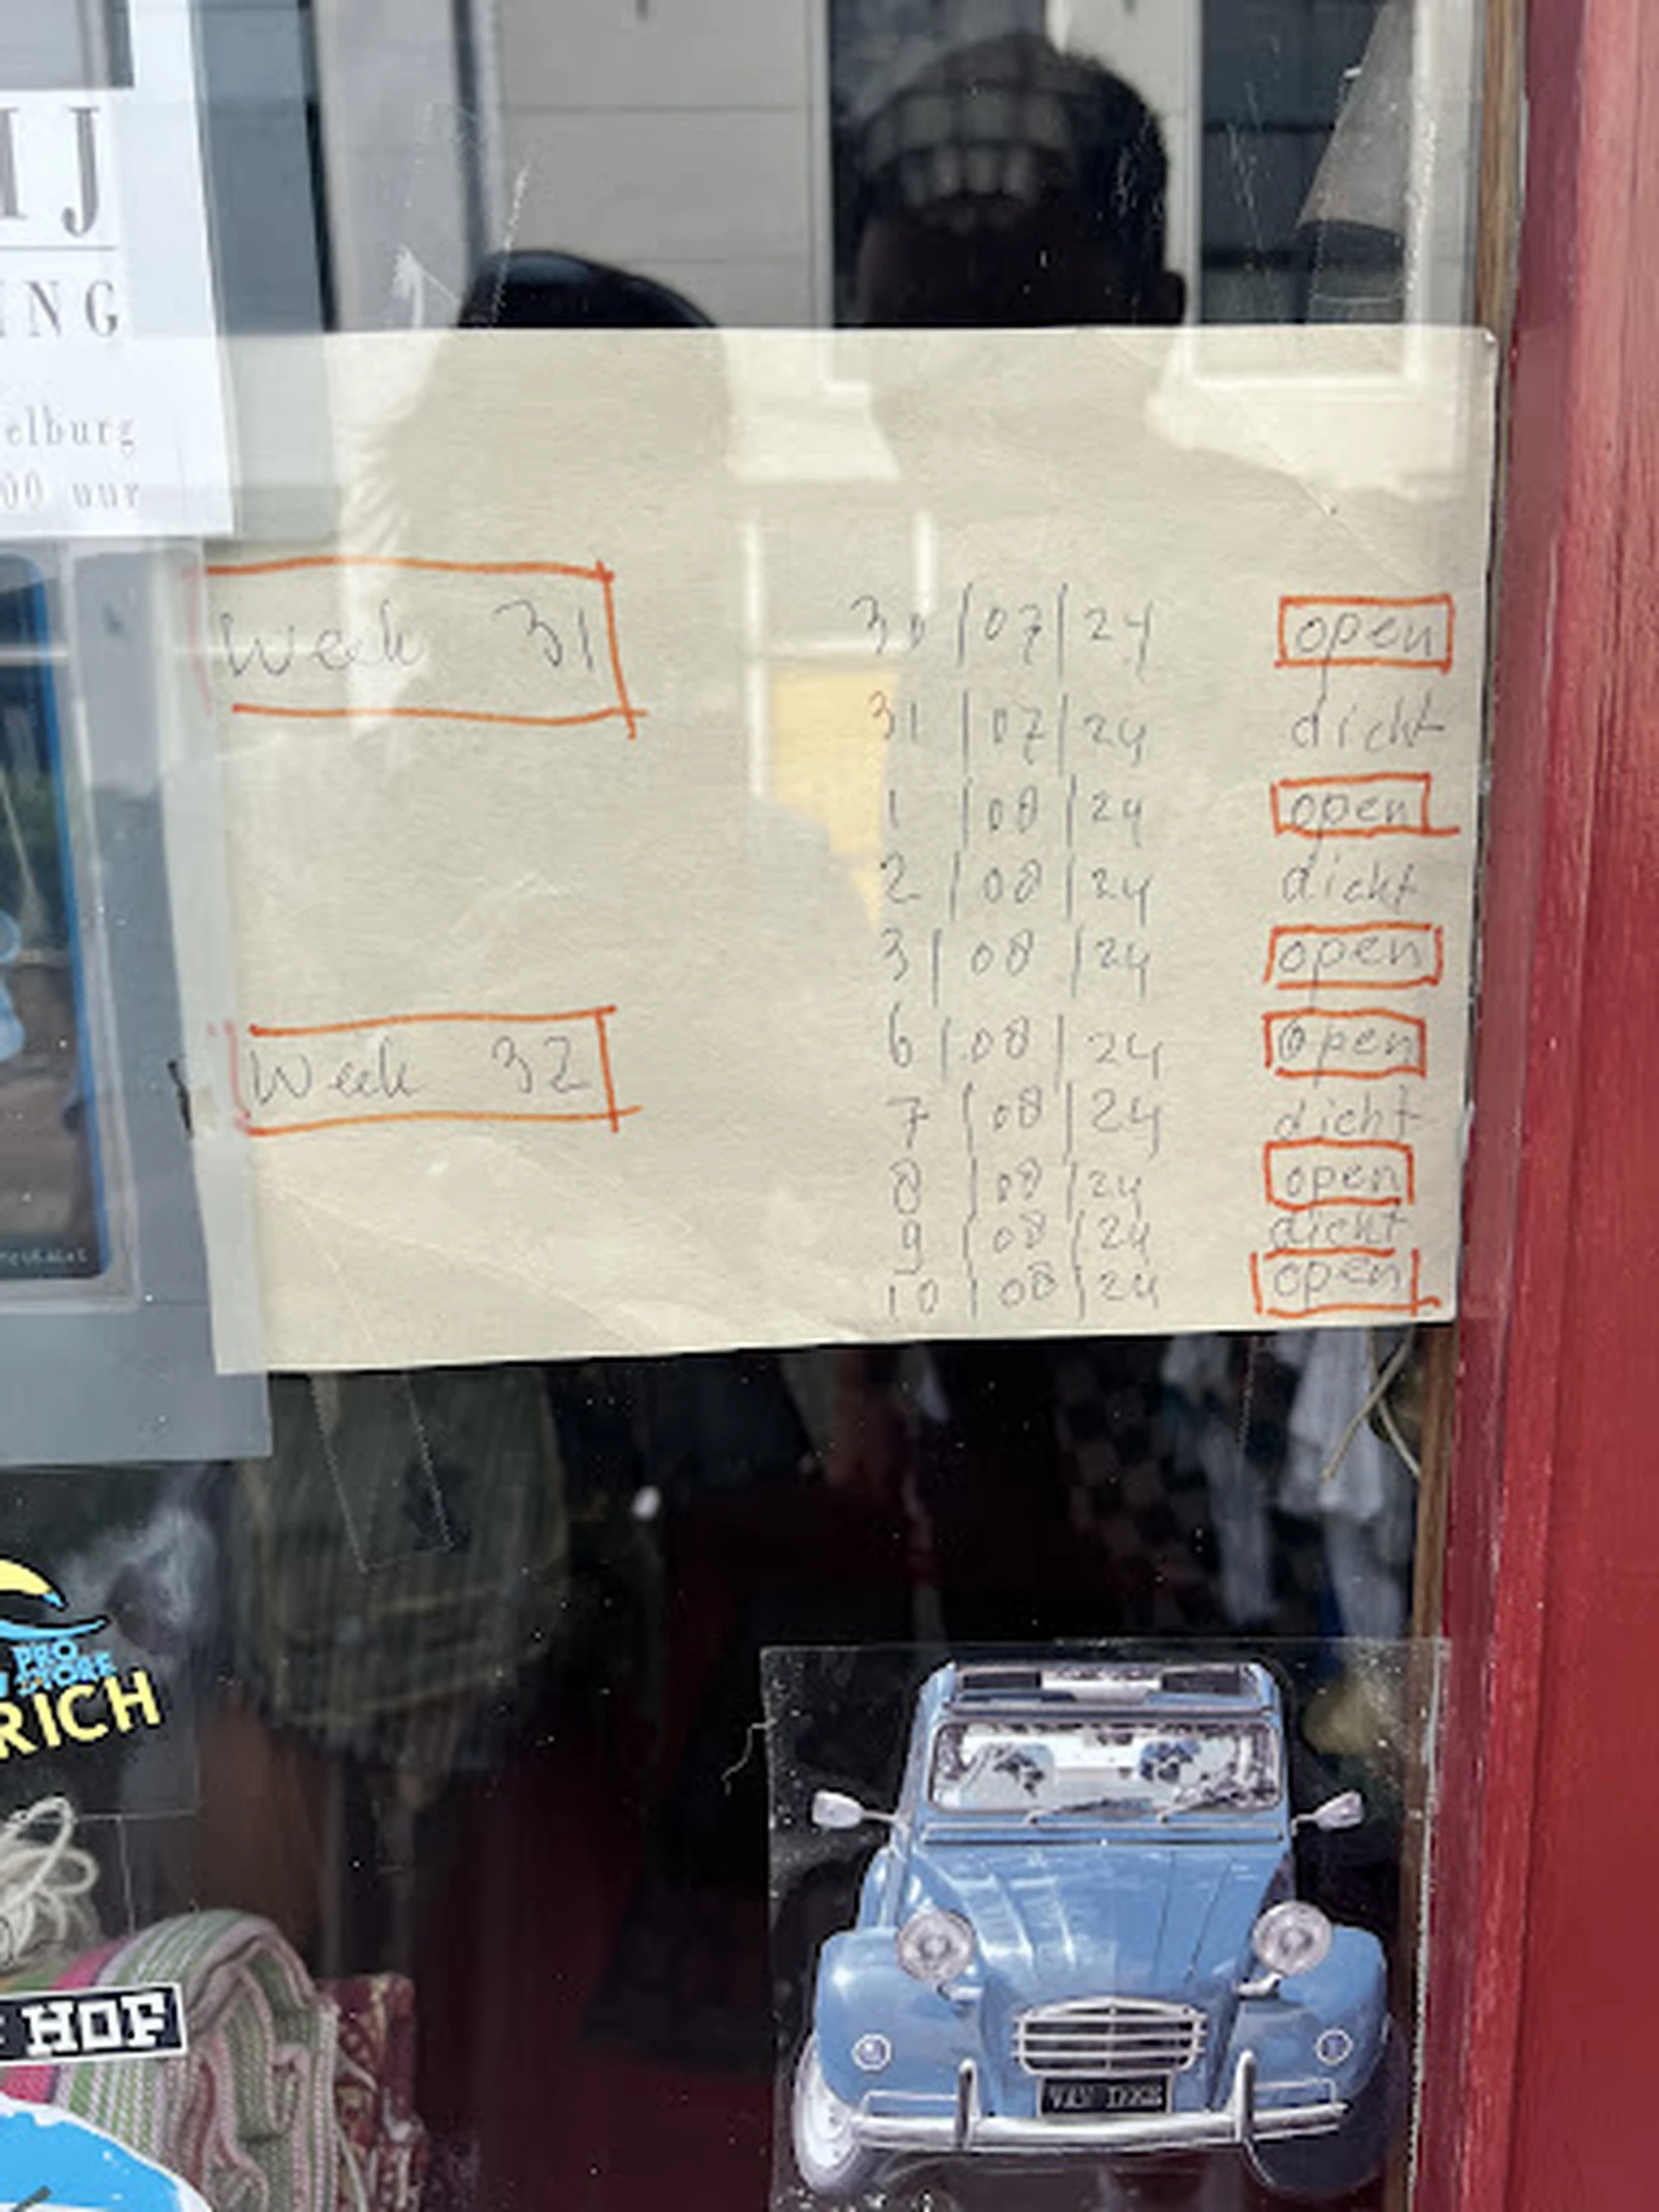 IJ
ING
elburg
00 uur
Week 31
30/07/24 open
31/07/24 dicht
1/08/24 open
2/08/24 dicht
3/08/24 open
Week 32
6/08/24 open
7/08/24 dicht
8/08/24 open
9/08/24 dicht
10/08/24 open
PRO
STORE
RICH
HOF